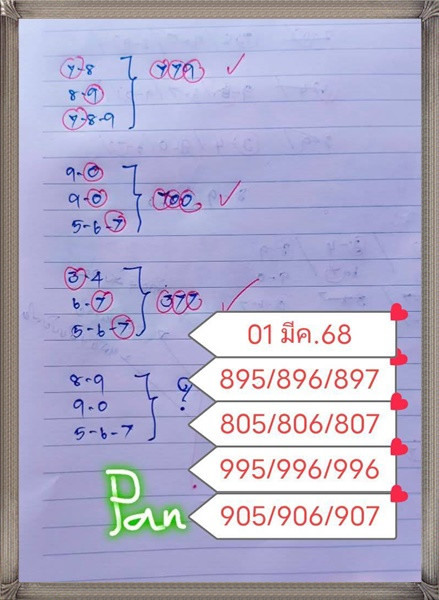 7-8
8-9 779 ✓
7-8-9
9-0
9-0 700 ✓
5-6-7
3-4
6-7 377 ✓
5-6-7
8-9
9-0 ?
5-6-7
01 มีค.68
895/896/897
805/806/807
995/996/996
905/906/907
Pan